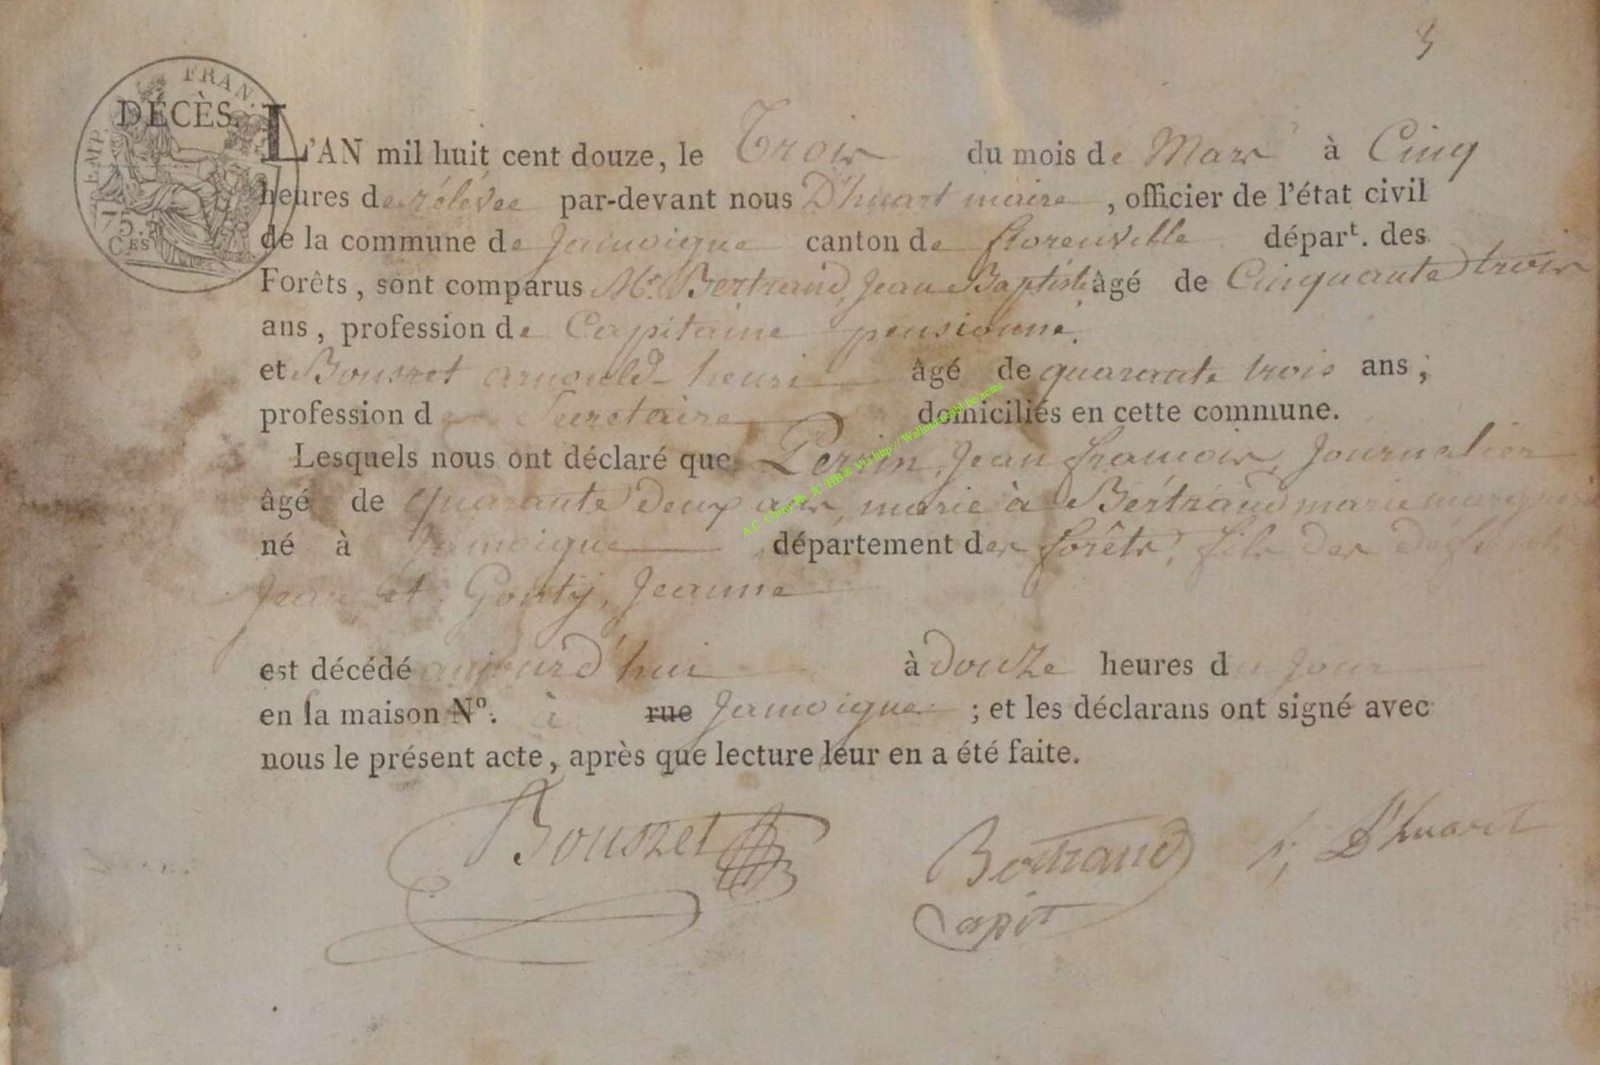 3
EMP. FRAN.
DÉCÈS.
75.
CES
L'AN mil huit cent douze, le Trois du mois de Mars à Cinq
heures de rélévée par-devant nous D'huart maire, officier de l'état civil
de la commune de Jamoigne canton de florenville départ. des
Forêts, sont comparus Mr. Bertrand, Jean Baptiste âgé de Cinquante trois
ans, profession de Capitaine pensionné.
et Bouszet arnould henri âgé de quarante trois ans;
profession de Secretaire domiciliés en cette commune.
Lesquels nous ont déclaré que Perin, Jean francois, Journalier
âgé de quarante Deux ans, marié à Bertrand marie
né à Jamoigne département des forêts, fils des
Jean et Gouty, Jeanne
est décédé aujourd'hui à douze heures du jour
en la maison No. à rue Jamoigne; et les déclarans ont signé avec
nous le présent acte, après que lecture leur en a été faite.
Bouszet Bertrand D'huart
Capit